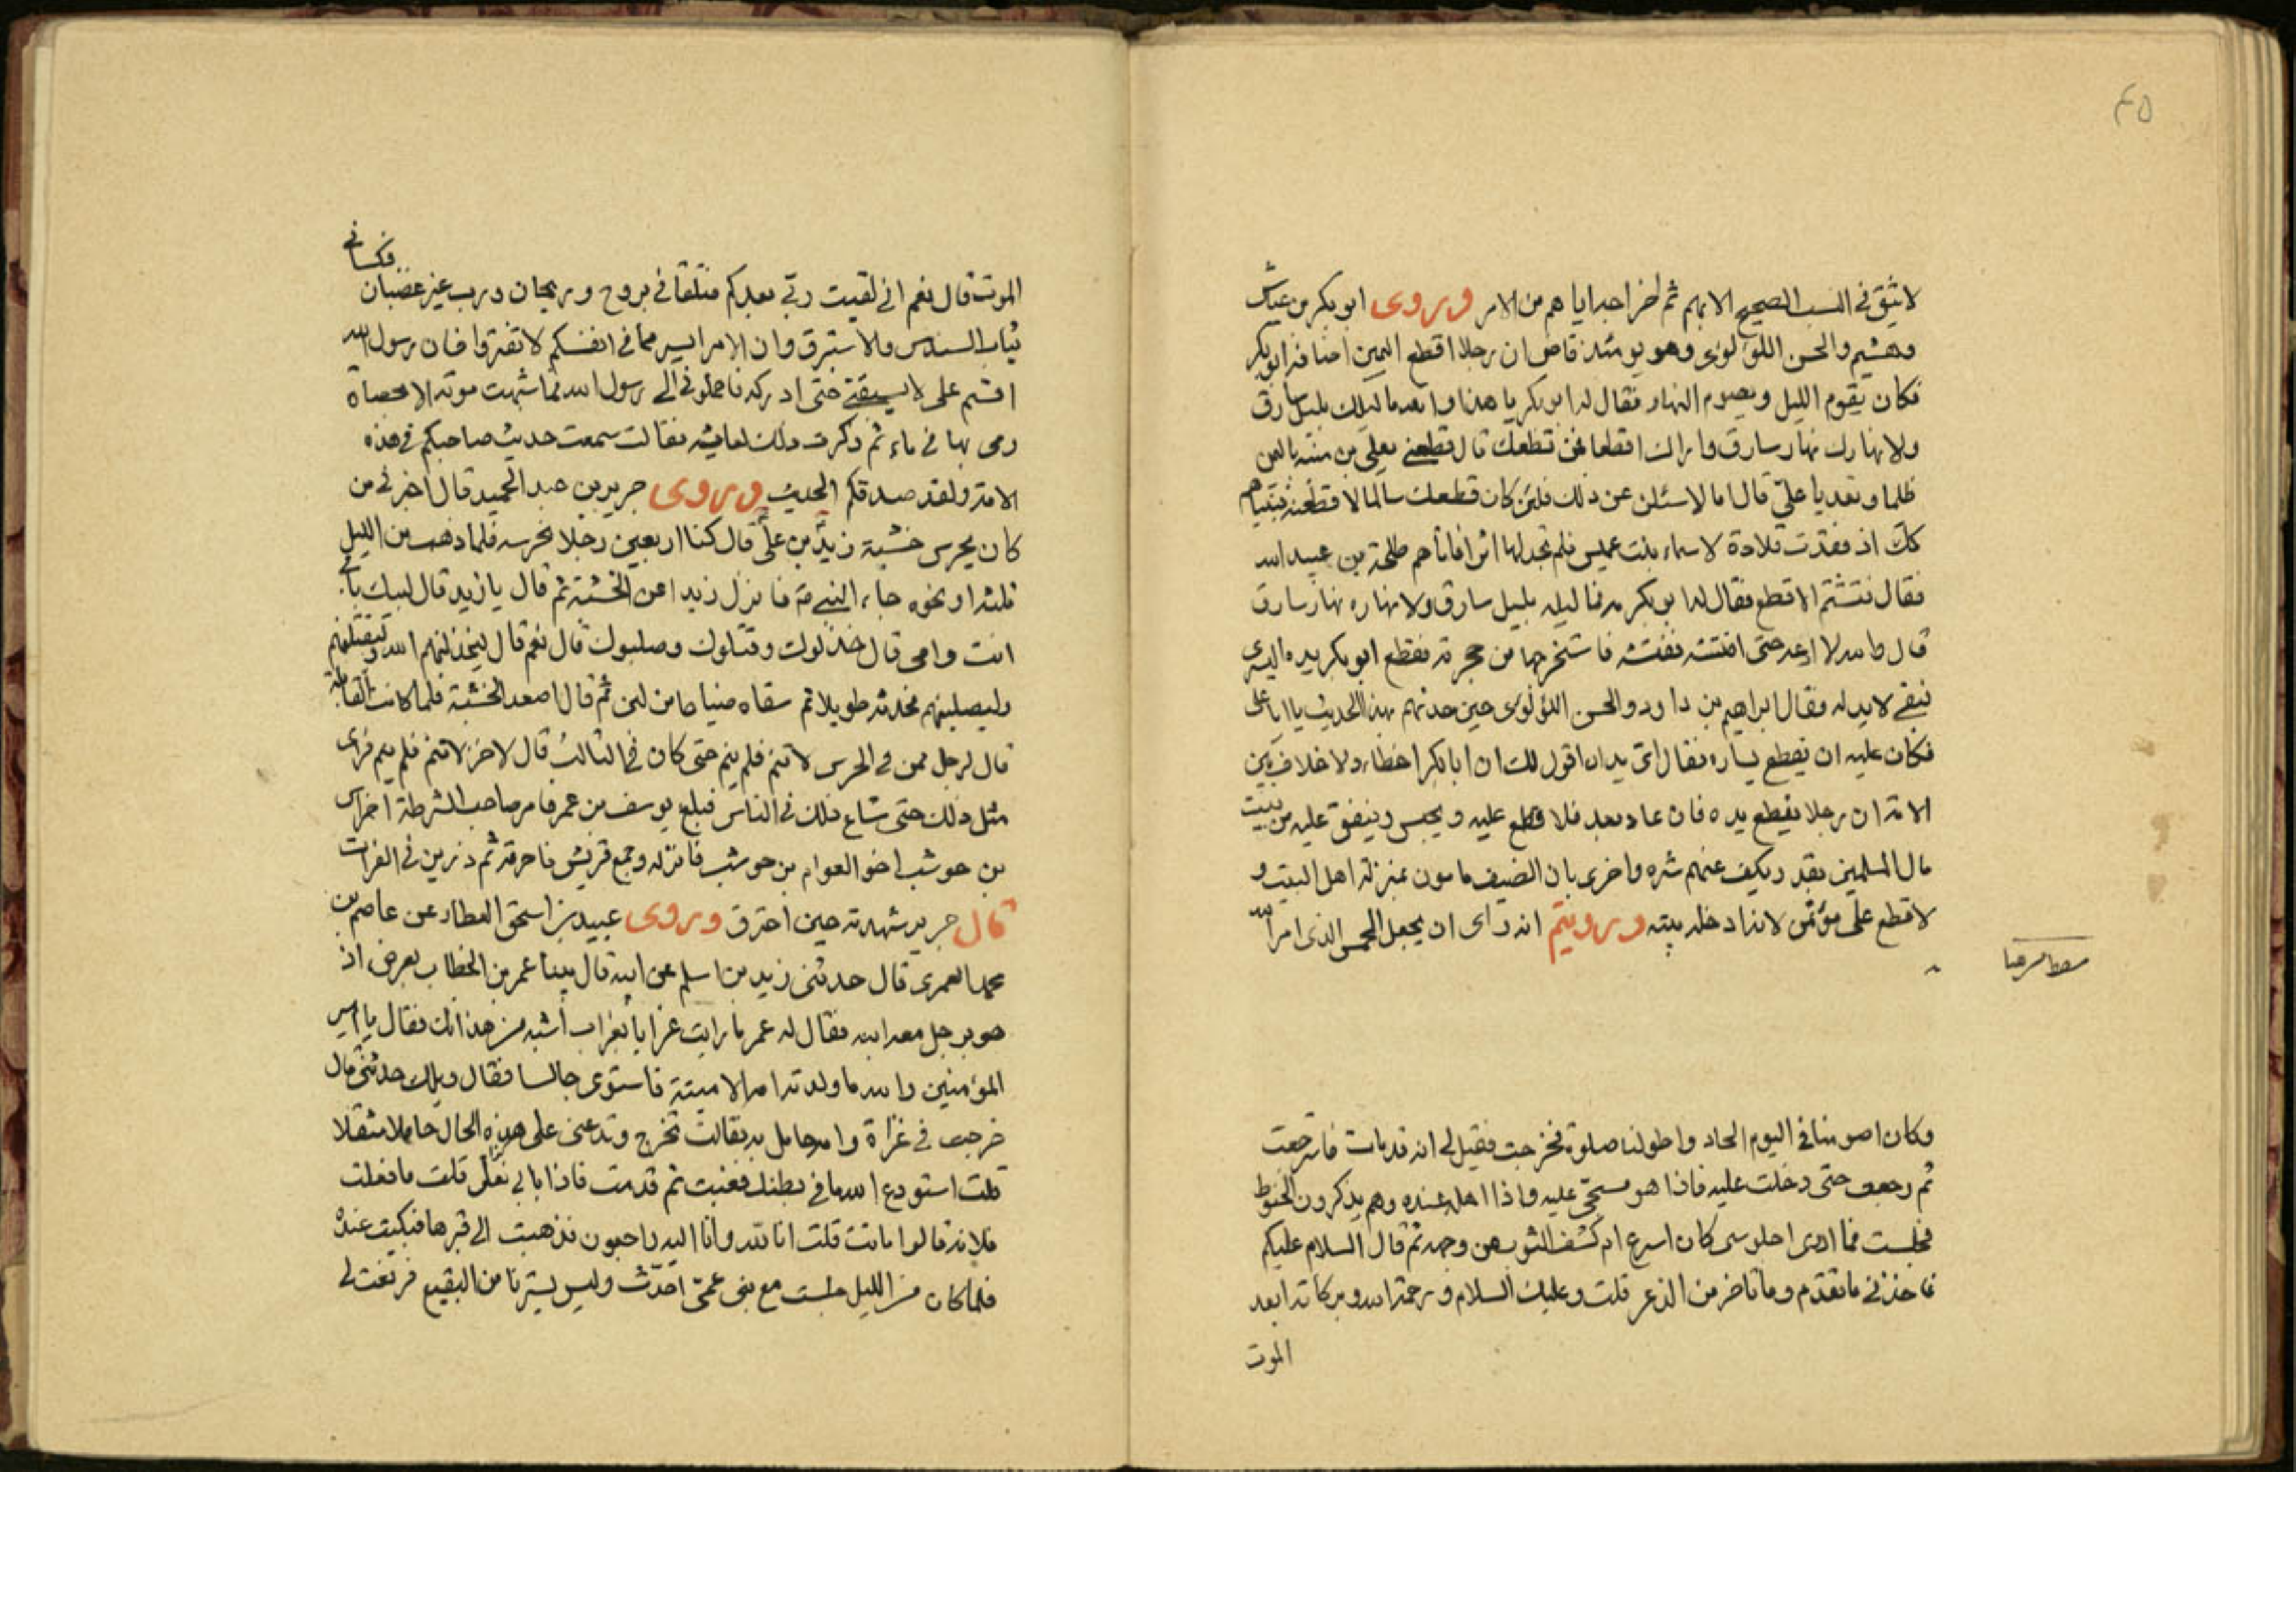 ٤٥
لا يثق في النسب الصحيح الا بهم ثم اخراجه ايا هم من الامر وروى ابو بكر بن عياش
وهشيم والحسن اللؤلؤى وهو يومئذ قاض ان رجلا اقطع اليمين اضافه ابو بكر
فكان يقوم الليل ويصوم النهار فقال له ابو بكر يا هذا والله ما ليلك بليل سارق
ولا نهارك نهار سارق واراك اقطعا فمن قطعك قال قطعنى يعلى بن منبه باليمن
ظلما وتعديا على قال اما لاسئلن عن ذلك فلئن كان قطعك ظالما لاقطعنه فبينا هم
كك اذ فقدت قلادة لاسماء بنت عميس فلم تجد لها اثرا فاتاهم طلحة بن عبيد الله
فقال فتشتم الاقطع فقال له ابو بكر مه فما ليله بليل سارق ولا نهاره نهار سارق
قال والله لا ادعه حتى افتشه ففتشه فاستخرجها من حجرته فقطع ابو بكر يده اليسرى
فبقى لا يد له فقال ابراهيم بن داود والحسن اللؤلؤى حين حدثهم بهذا الحديث يا ابا على
فكان عليه ان يقطع يساره فقال اتريد ان اقول لك ان ابا بكر اخطاء ولا خلاف بين
الامة ان رجلا يقطع يده فان عاد بعد فلا قطع عليه ويحبس وينفق عليه من بيت
مال المسلمين بقدر ويكف عنهم شره واخرى بان الضيف مامون بمنزلة اهل البيت و
لا قطع على مؤتمن لانه ادخله بيته ورويتم انه راى ان يجعل الخمس الذى امر الله
وكان اصومنا في اليوم الحار واطولنا صلوة فخرجت فقيل لى انه قد مات فاسترجعت
ثم رجعت حتى دخلت عليه فاذا هو مسجى عليه واذا اهله عنده وهم يذكرون الحنوط
فجلست فما ادرى اجلوسى كان اسرع ام كشف الثوب عن وجهه ثم قال السلام عليكم
فاخذنى ما تقدم وما تاخر من الذعر قلت وعليك السلام ورحمة الله وبركاته ابعد
الموت
فكسانى
الموت قال نعم انى لقيت ربى بعدكم فتلقانى بروح وريحان ورب غير غضبان
ثياب السندس والاستبرق وان الامر ايسر مما في انفسكم لا تفتروا فان رسول الله
اقسم على لا يسبقنى حتى ادركه فاحملونى الى رسول الله فما شبهت موته الا بحصاة
رمى بها في ماء ثم ذكرت ذلك لعايشه فقالت سمعت حديث صاحبكم في هذه
الامة ولقد صدقكم الحديث وروى جرير بن عبد الحميد قال اخبرنى من
كان يحرس خشبة زيد بن على قال كنا اربعين رجلا نحرسه فلما ذهب من الليل
ثلثه او نحوه جاء النبى فانزل زيدا عن الخشبة ثم قال يا زيد قال لبيك بابى
انت وامى قال خذلوك وقتلوك وصلبوك قال نعم قال ليخذلنهم الله وليقتلنهم
وليصلبنهم فحدثه طويلا ثم سقاه ضياحا من لبن ثم قال اصعد الخشبة فلما كانت القابلة
قال لرجل ممن في الحرس لا تنم فلم ينم حتى كان في الثالث قال لاخر لا تنم فلم ينم فراى
مثل ذلك حتى شاع ذلك في الناس فبلغ يوسف بن عمر فامر صاحب الشرطة
بن حوشب اخو العوام بن حوشب فانزله وجمع قريش فاحرقه ثم ذرين في الفرات
قال جرير شهدته حين احترق وروى عبيد بن اسحق العطار عن عاصم بن
محمد العمرى قال حدثنى زيد بن اسلم عن ابيه قال بينا عمر بن الخطاب يعرض اذ
هو برجل معه ابنه فقال له عمر ما رايت غرابا بغراب اشبه من هذا بك فقال يا امير
المؤمنين والله ما ولدته امه الا ميتة فاستوى جالسا فقال ويلك حدثنى قال
خرجت في غزاة وامه حامل به فقالت تخرج وتدعنى على هذه الحال حاملا مثقلا
قلت استودع الله ما في بطنك فغبت ثم قدمت فاذا بابى مغلق قلت ما فعلت
فلانة قالوا ماتت قلت انا لله وانا اليه راجعون فذهبت الى قبرها فبكيت عنده
فلما كان من الليل جلست مع بنى عمى احدث وليس يسترنا من البقيع فرفعت لى